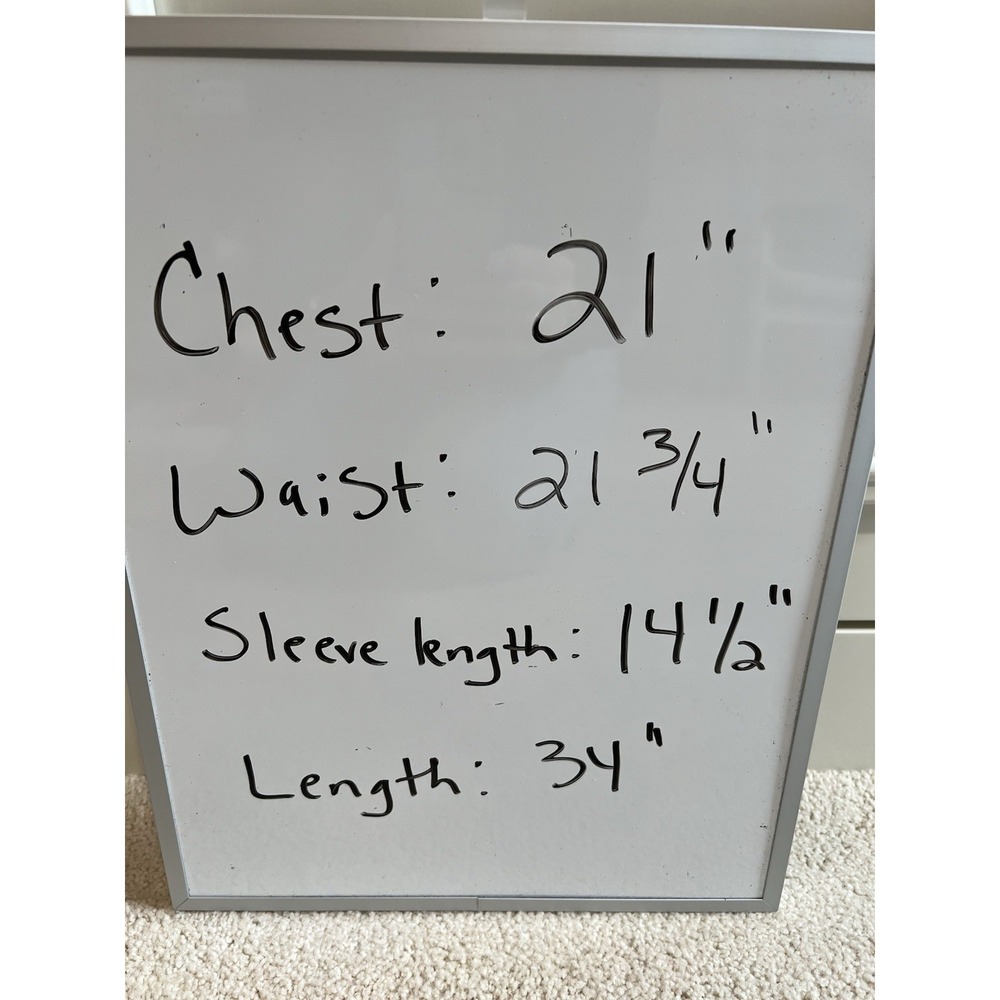 Chest: 21"
Waist: 21 3/4"
Sleeve length: 14 1/2"
Length: 34"